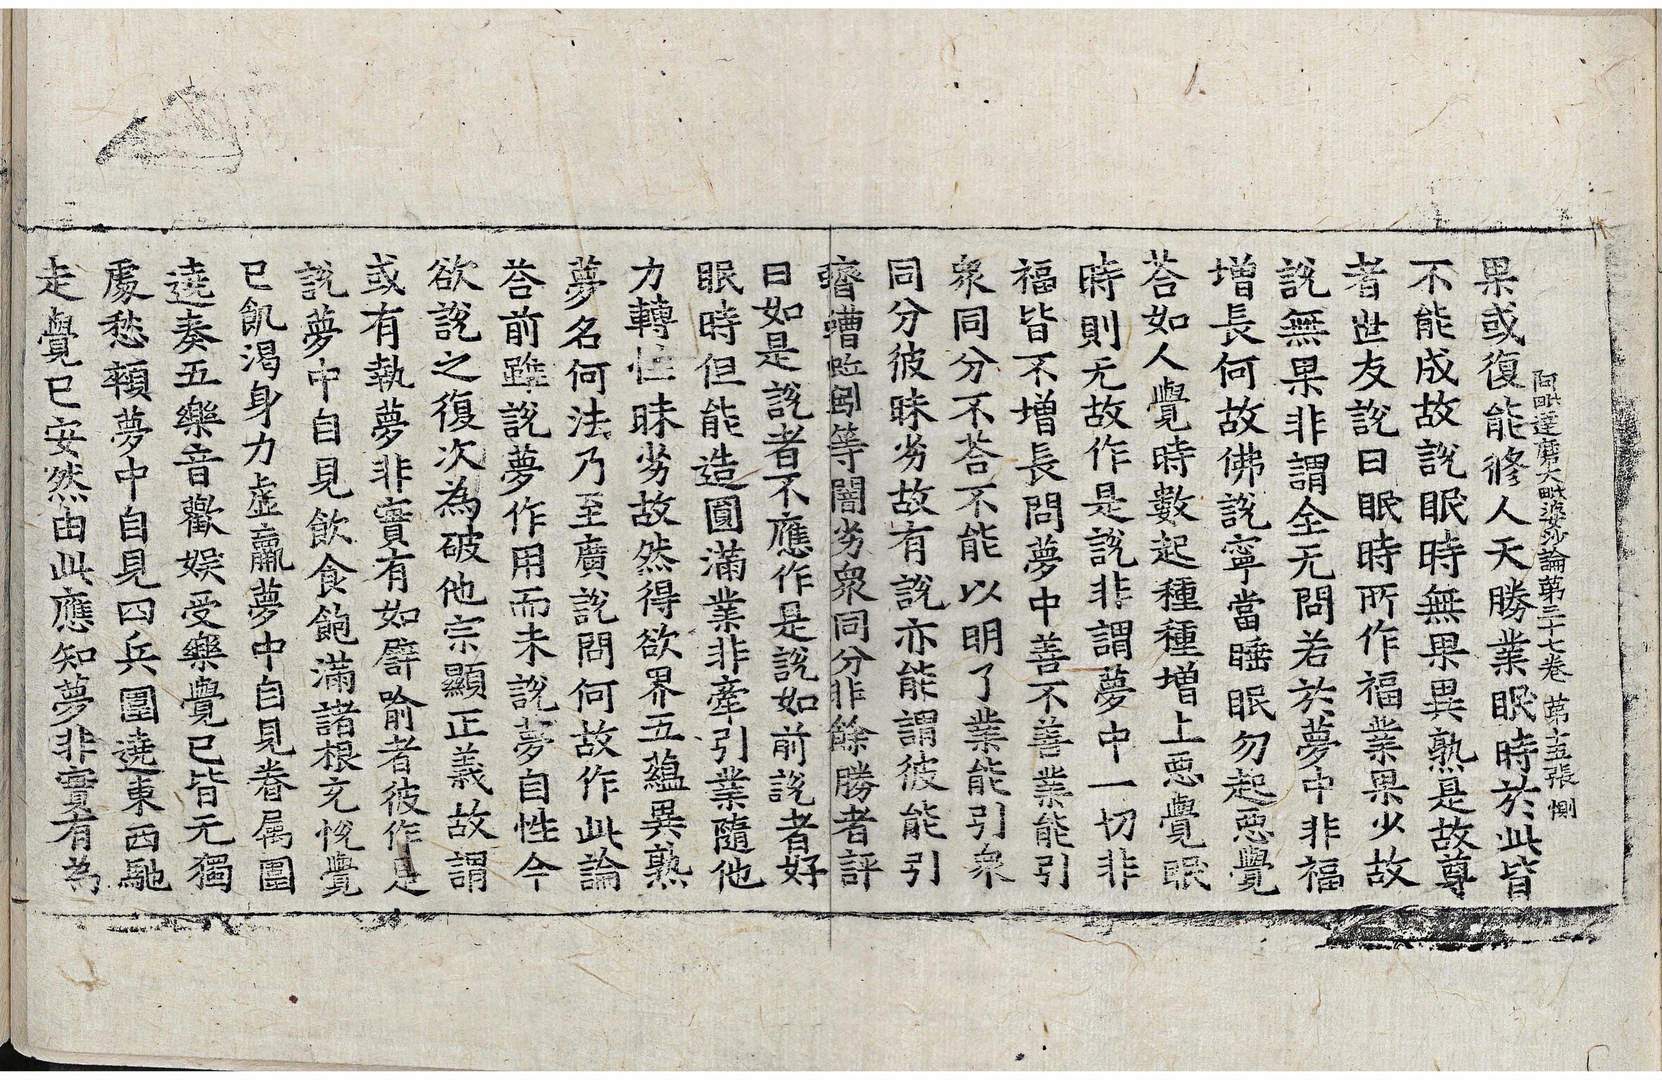 阿毗達磨大毗婆沙論第三十七卷 第十五張 惻
果或復能修人天勝業眠時於此皆
不能成故說眠時無果異熟是故尊
者世友說曰眠時所作福業果少故
說無果非謂全无問若於夢中非福
增長何故佛說寧當睡眠勿起惡覺
荅如人覺時數起種種增上惡覺眠
時則无故作是說非謂夢中一切非
福皆不增長問夢中善不善業能引
衆同分不荅不能以明了業能引衆
同分彼昧劣故有說亦能謂彼能引
蠐螬等闇劣衆同分非餘勝者評
曰如是說者不應作是說如前說者好
眠時但能造圓滿業非牽引業隨他
力轉性昧劣故然得欲界五蘊異熟
夢名何法乃至廣說問何故作此論
荅前雖說夢作用而未說夢自性今
欲說之復次為破他宗顯正義故謂
或有執夢非實有如譬喻者彼作是
說夢中自見飲食飽滿諸根充悅覺
已飢渴身力虛羸夢中自見眷屬圍
遶奏五樂音歡娛受樂覺已皆无獨
處愁顇夢中自見四兵圍遶東西馳
走覺已安然由此應知夢非實有為